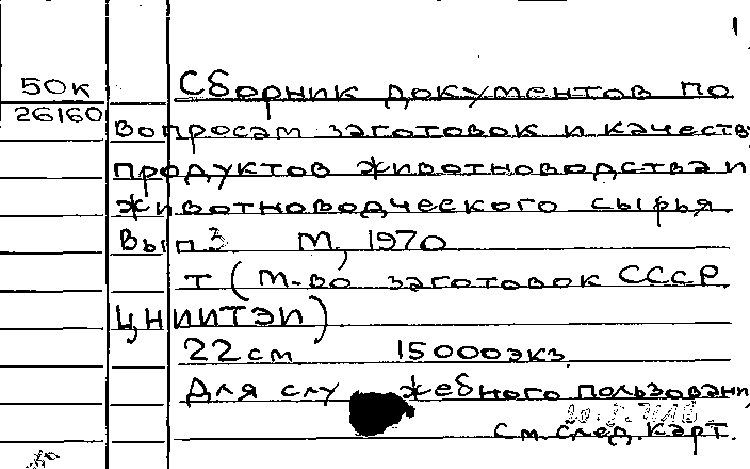 1
50к
26160
Сборник документов по
вопросам заготовок и качеств
продуктов животноводства и
животноводческого сырья.
Вып 3 М, 1970
т (М-во заготовок СССР
ЦНИИТЭИ)
22см 15000экз.
Для служебного пользовани
см. след. карт.